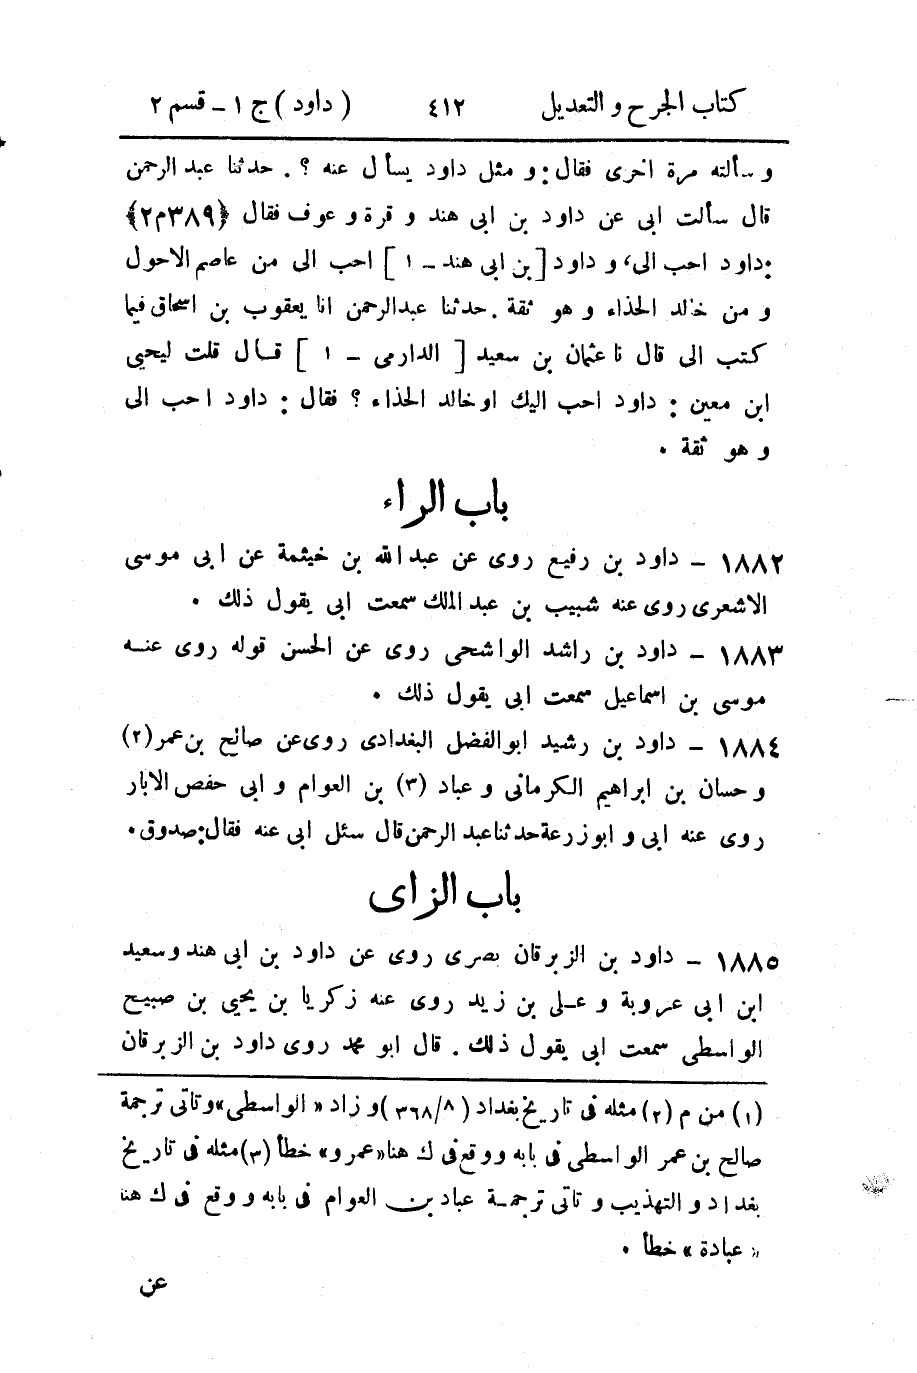 كتاب الجرح و التعديل ٤١٢ ( داود ) ج ١ - قسم ٢
و سألته مرة اخرى فقال: و مثل داود يسأل عنه ؟ . حدثنا عبد الرحمن
قال سألت ابى عن داود بن ابى هند و قرة و عوف فقال ﴿٣٨٩م٢﴾
:داود احب الى، و داود [بن ابى هند - ١ ] احب الى من عاصم الاحول
و من خالد الحذاء و هو ثقة . حدثنا عبدالرحمن انا يعقوب بن اسحاق فيما
كتب الى قال نا عثمان بن سعيد [ الدارمى - ١ ] قال قلت ليحيى
ابن معين : داود احب اليك او خالد الحذاء ؟ فقال : داود احب الى
و هو ثقة .
باب الراء
١٨٨٢ - داود بن رفيع روى عن عبد الله بن خيثمة عن ابى موسى
الاشعرى روى عنه شبيب بن عبد الملك سمعت ابى يقول ذلك .
١٨٨٣ - داود بن راشد الواشحى روى عن الحسن قوله روى عنه
موسى بن اسماعيل سمعت ابى يقول ذلك .
١٨٨٤ - داود بن رشيد ابو الفضل البغدادى روى عن صالح بن عمر (٢)
و حسان بن ابراهيم الكرمانى و عباد (٣) بن العوام و ابى حفص الابار
روى عنه ابى و ابو زرعة حدثنا عبد الرحمن قال سئل ابى عنه فقال: صدوق .
باب الزاى
١٨٨٥ - داود بن الزبرقان بصرى روى عن داود بن ابى هند و سعيد
ابن ابى عروبة و على بن زيد روى عنه زكريا بن يحيى بن صبيح
الواسطى سمعت ابى يقول ذلك . قال ابو محمد روى داود بن الزبرقان
(١) من م (٢) مثله فى تاريخ بغداد ( ٣٦٨/٨ ) و زاد « الواسطى » و تاتى ترجمة
صالح بن عمر الواسطى فى بابه و وقع فى ك هنا « عمرو » خطأ (٣) مثله فى تاريخ
بغداد و التهذيب و تاتى ترجمة عباد بن العوام فى بابه و وقع فى ك هنا
« عبادة » خطأ .
عن